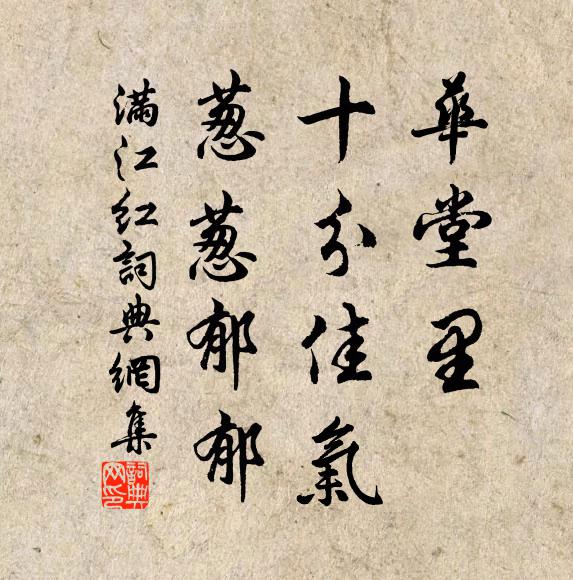 華堂里
十分佳氣
葱葱郁郁
滿江红詞典網集
詞典网印